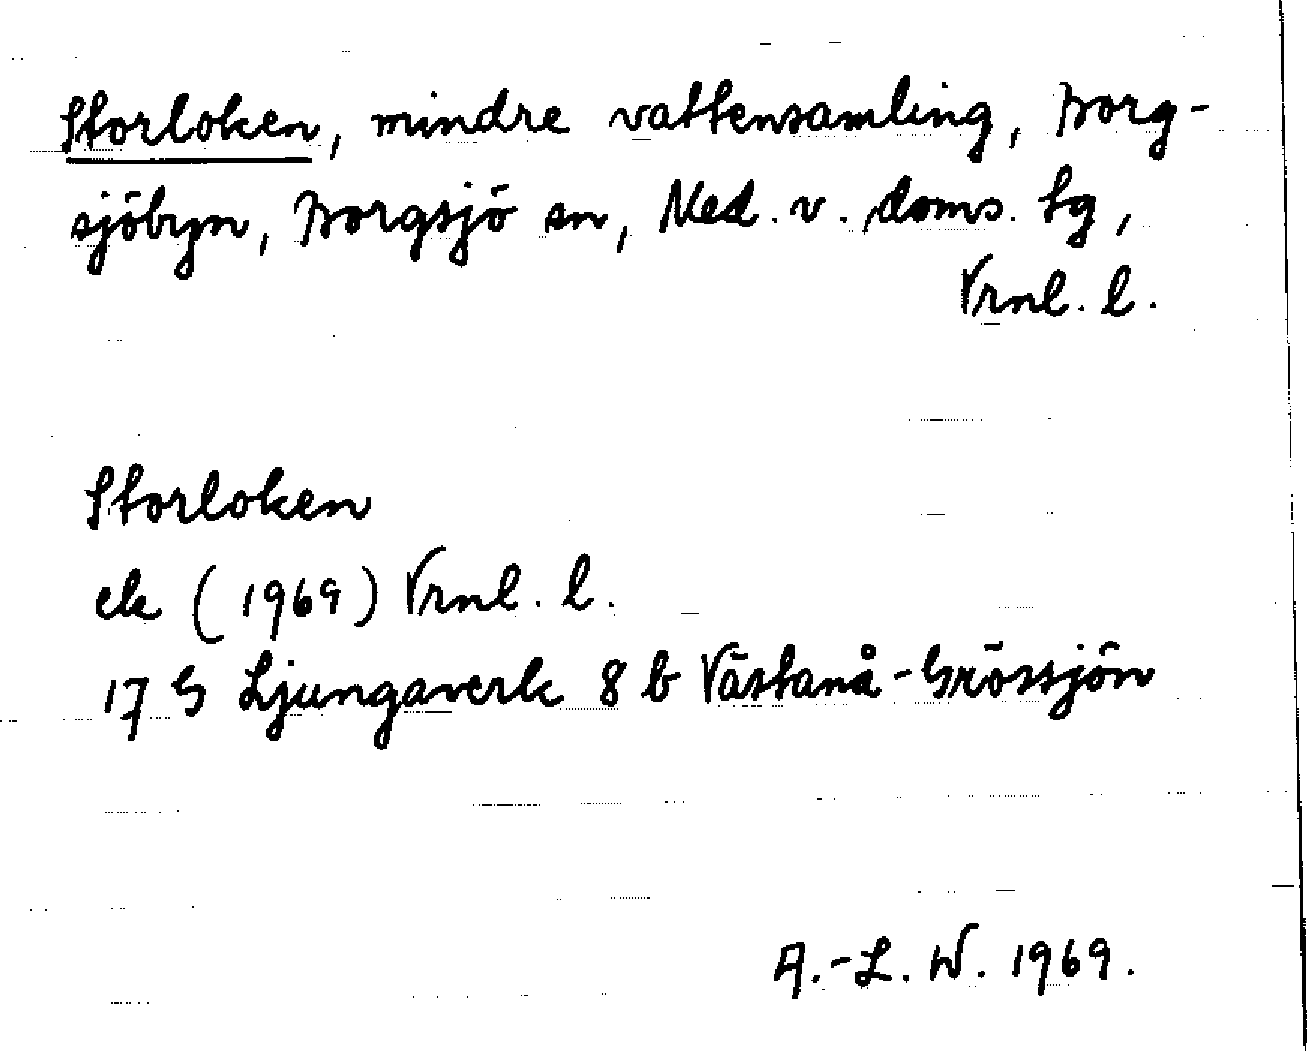 Storloken, mindre vattensamling, Borg-
sjöbyn, Borgsjö sn, Med. v. doms. tg,
Vrnl. l.
Storloken
ek (1969) Vrnl. l.
17 G Ljungaverk 8 b Västanå-Grössjön
A.-L. W. 1969.